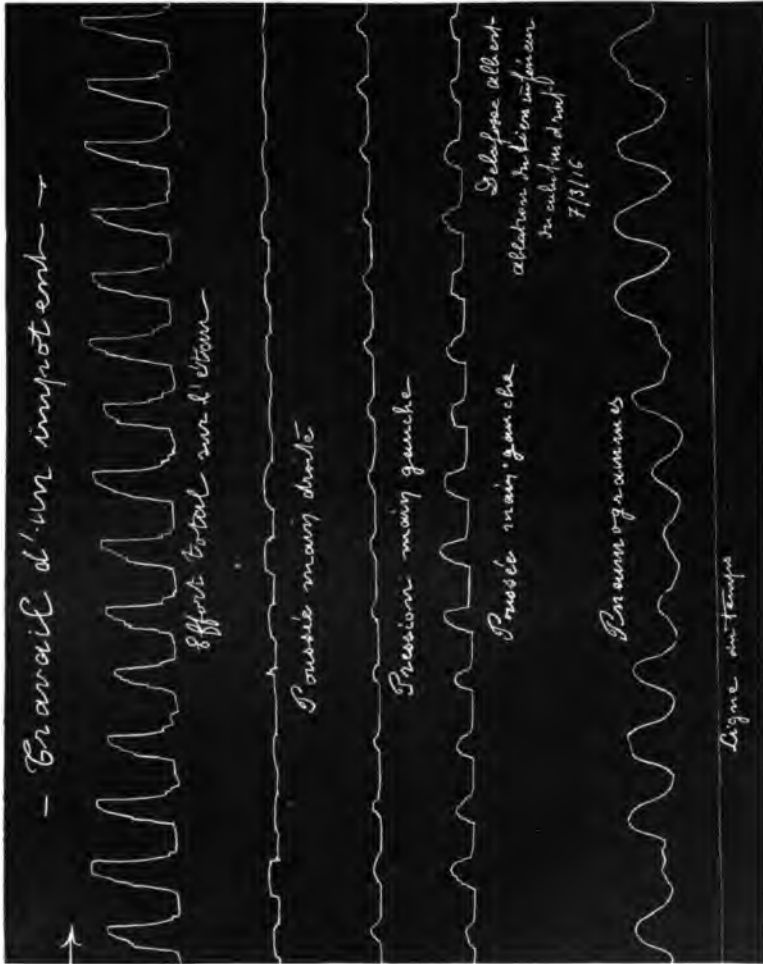 - Travail d'un impotent -
Effort total sur l'étau
Poussée main droite
Pression main gauche
Poussée main gauche
Delafosse Albert
ablation du tiers inférieur
du cubitus droit
7/3/16
Pneumogrammes
Ligne du temps